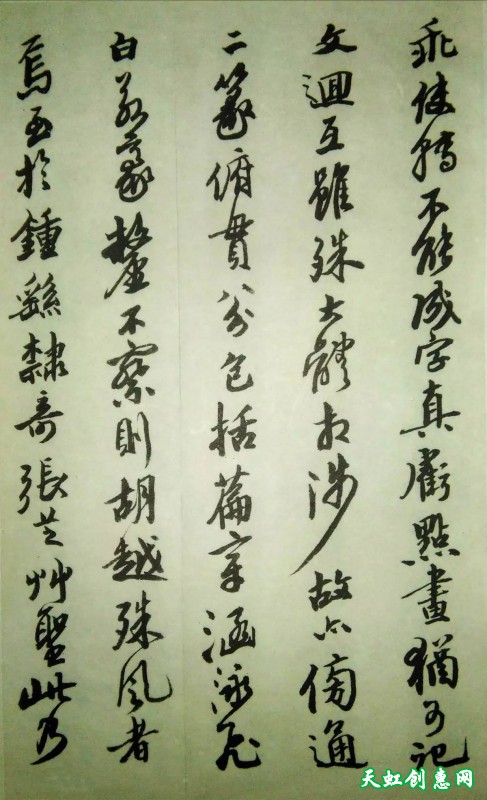 乖使轉不能成字真虧點畫猶可記
文迴互雖殊大體相涉故亦傍通
二篆俯貫八分包括篇章涵泳飛
白若豪釐不察則胡越殊風者
焉至於鍾繇隸奇張芝艸聖此乃
天虹创惠网